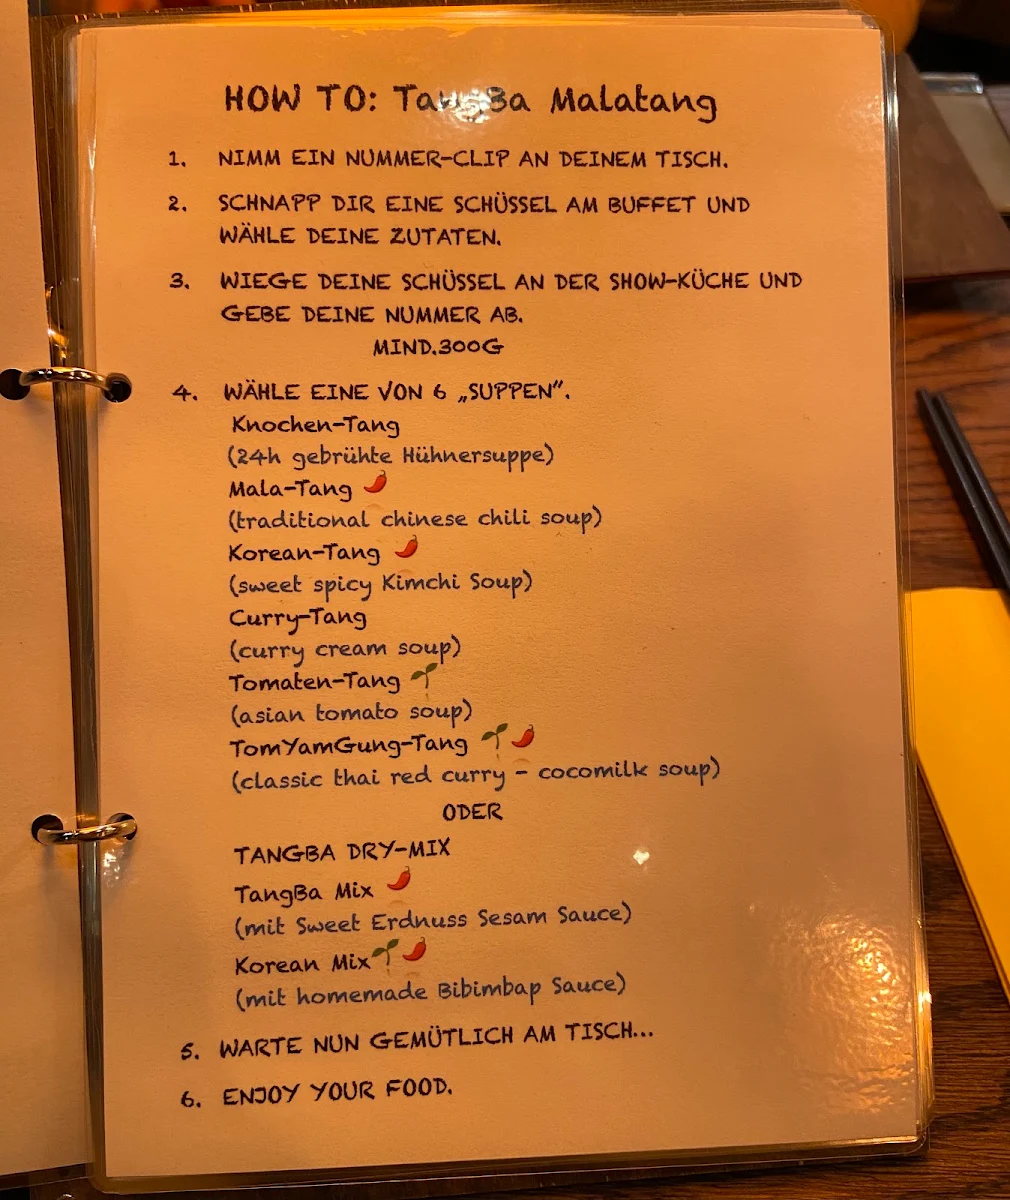 HOW TO: TangBa Malatang
1. NIMM EIN NUMMER-CLIP AN DEINEM TISCH.
2. SCHNAPP DIR EINE SCHÜSSEL AM BUFFET UND
WÄHLE DEINE ZUTATEN.
3. WIEGE DEINE SCHÜSSEL AN DER SHOW-KÜCHE UND
GEBE DEINE NUMMER AB.
MIND.300G
4. WÄHLE EINE VON 6 „SUPPEN“.
Knochen-Tang
(24h gebrühte Hühnersuppe)
Mala-Tang 🌶️
(traditional chinese chili soup)
Korean-Tang 🌶️
(sweet spicy Kimchi Soup)
Curry-Tang
(curry cream soup)
Tomaten-Tang 🌱
(asian tomato soup)
TomYamGung-Tang 🌱🌶️
(classic thai red curry - cocomilk soup)
ODER
TANGBA DRY-MIX
TangBa Mix 🌶️
(mit Sweet Erdnuss Sesam Sauce)
Korean Mix 🌱🌶️
(mit homemade Bibimbap Sauce)
5. WARTE NUN GEMÜTLICH AM TISCH...
6. ENJOY YOUR FOOD.